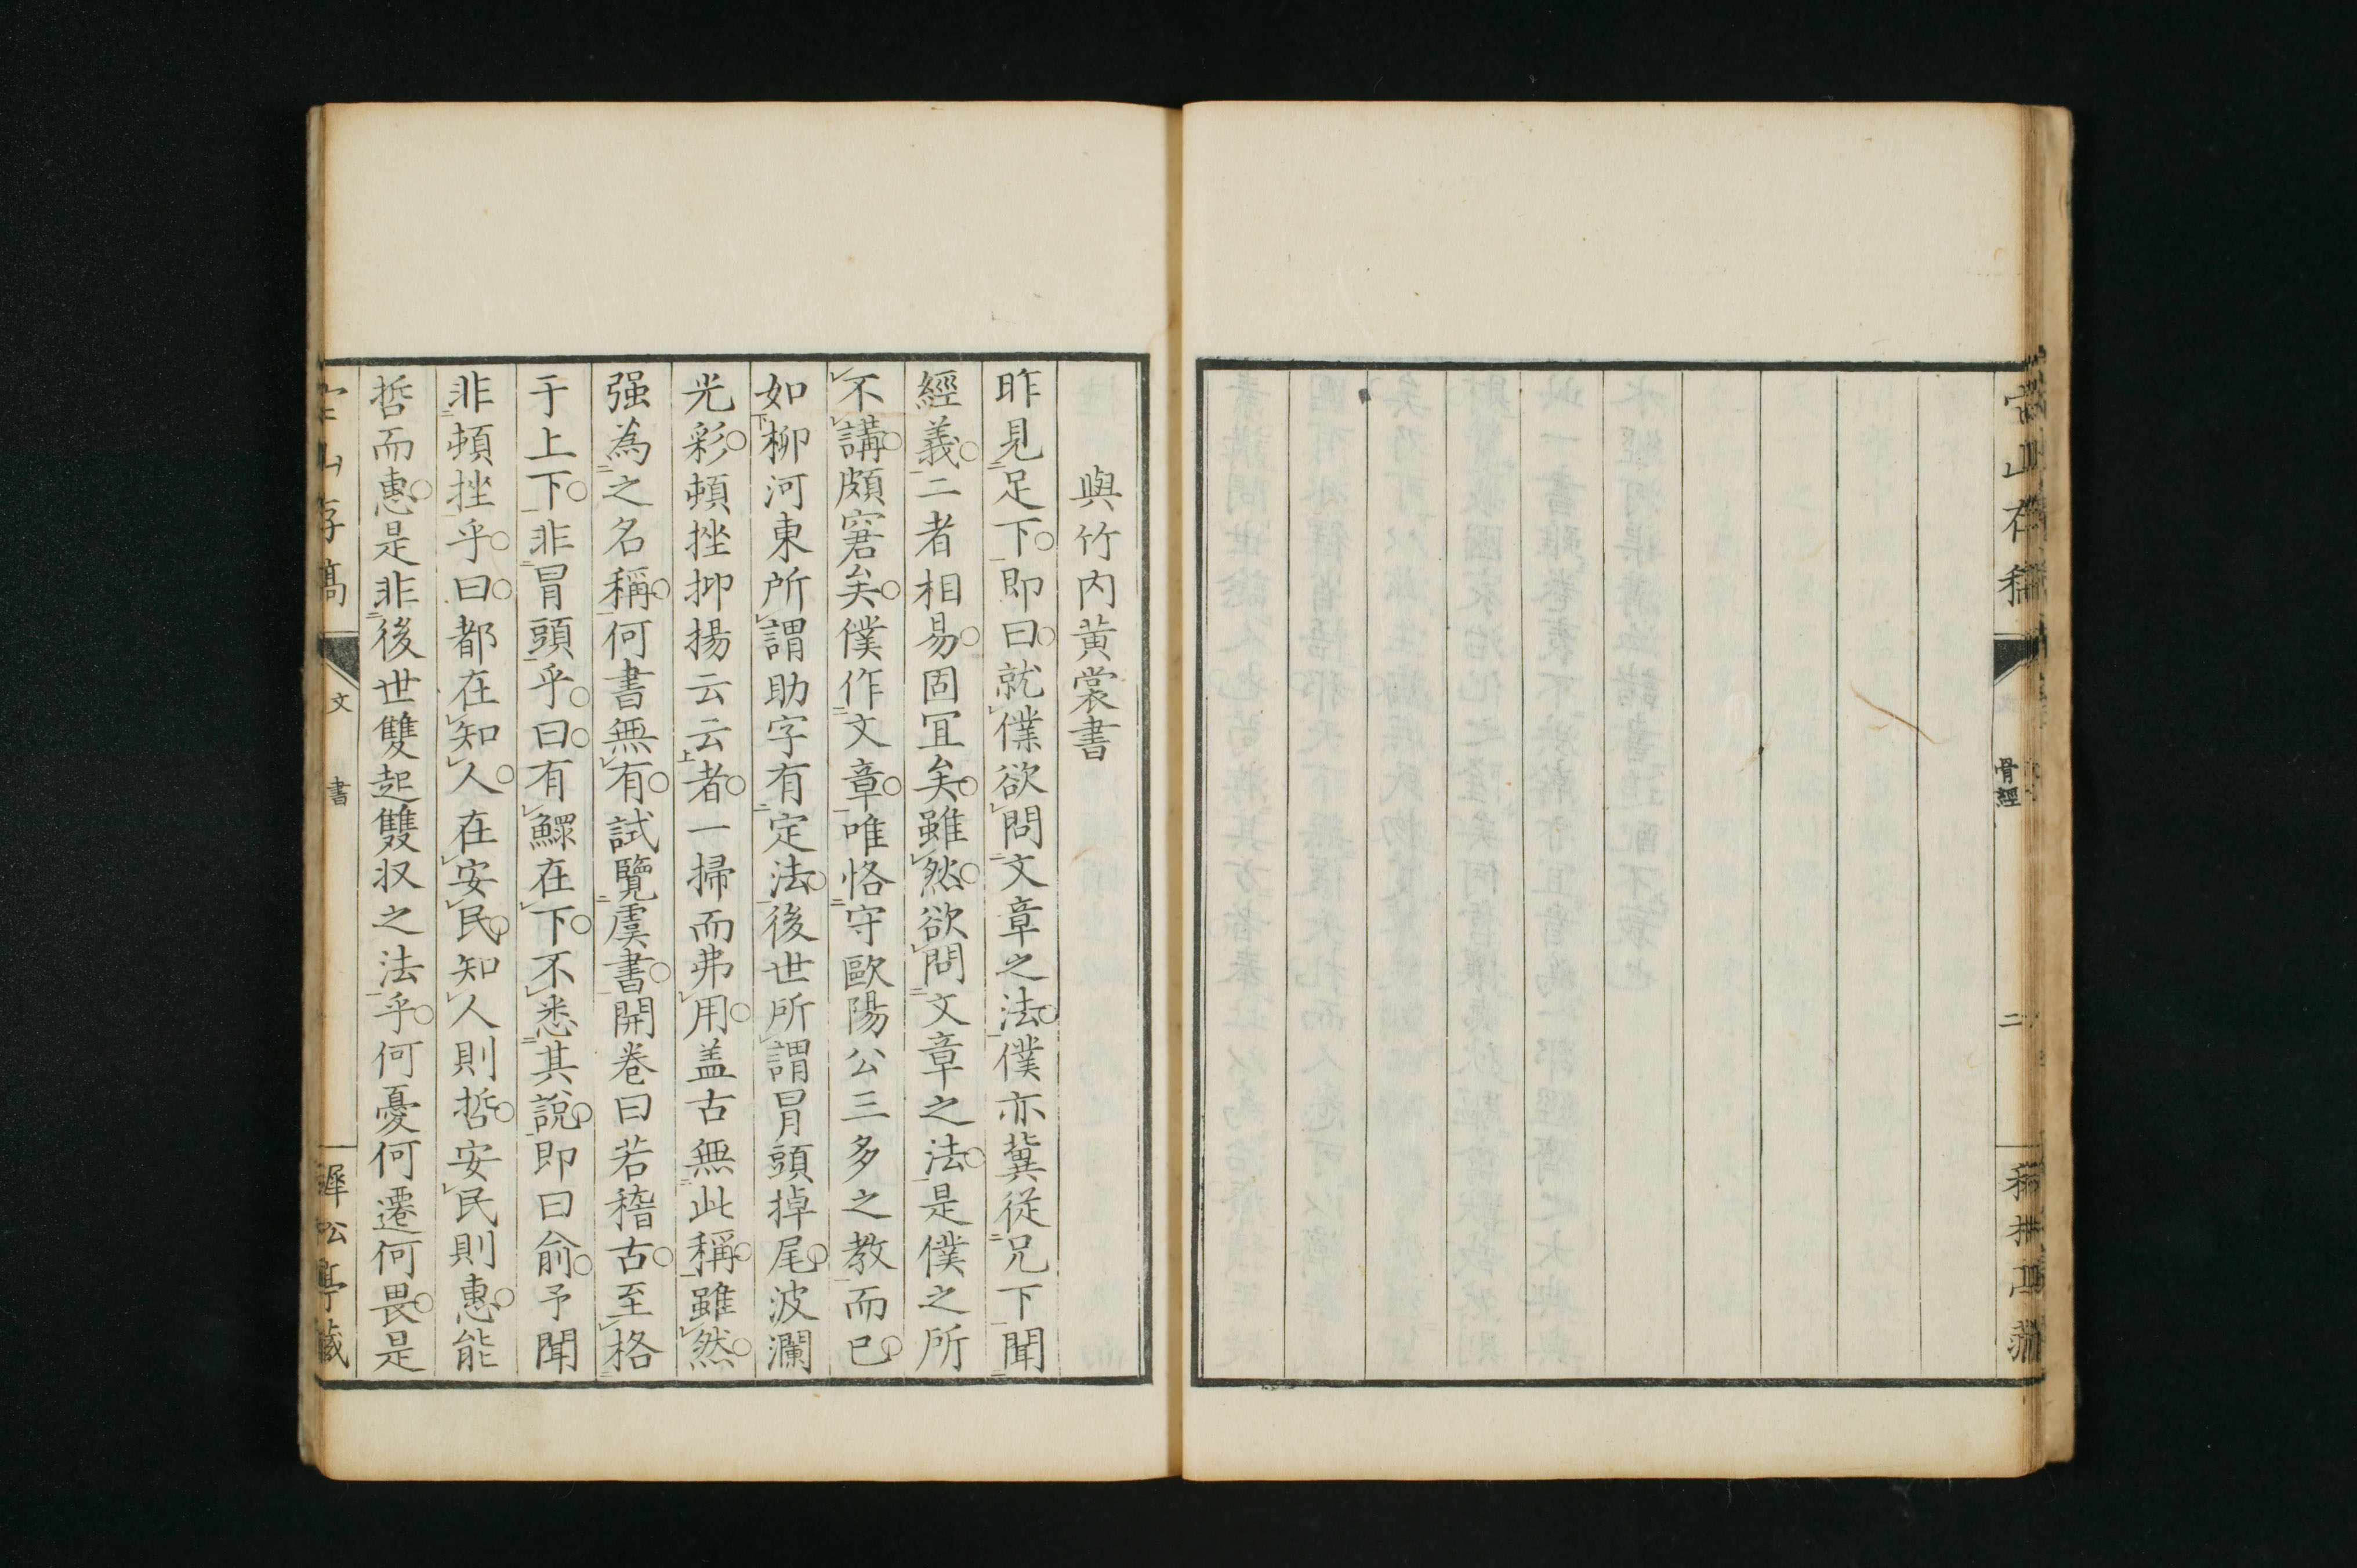 骨經
二
與竹内黄裳書
昨見足下即曰就僕欲問文章之法僕亦冀從兄下聞
經義二者相易固冝矣雖然欲問文章之法是僕之所
不講頗窘矣僕作文章唯恪守歐陽公三多之教而已
如柳河東所謂助字有定法後世所謂冐頭掉尾波瀾
光彩頓挫抑揚云云者一掃而弗用盖古無此稱雖然
强為之名稱何書無有試覽虞書開巻曰若稽古至格
于上下非冐頭乎曰有鰥在下不悉其說即曰俞予聞
非頓挫乎曰都在知人在安民知人則哲安民則惠能
哲而惠是非後世雙起雙収之法乎何憂何遷何畏是
文 書